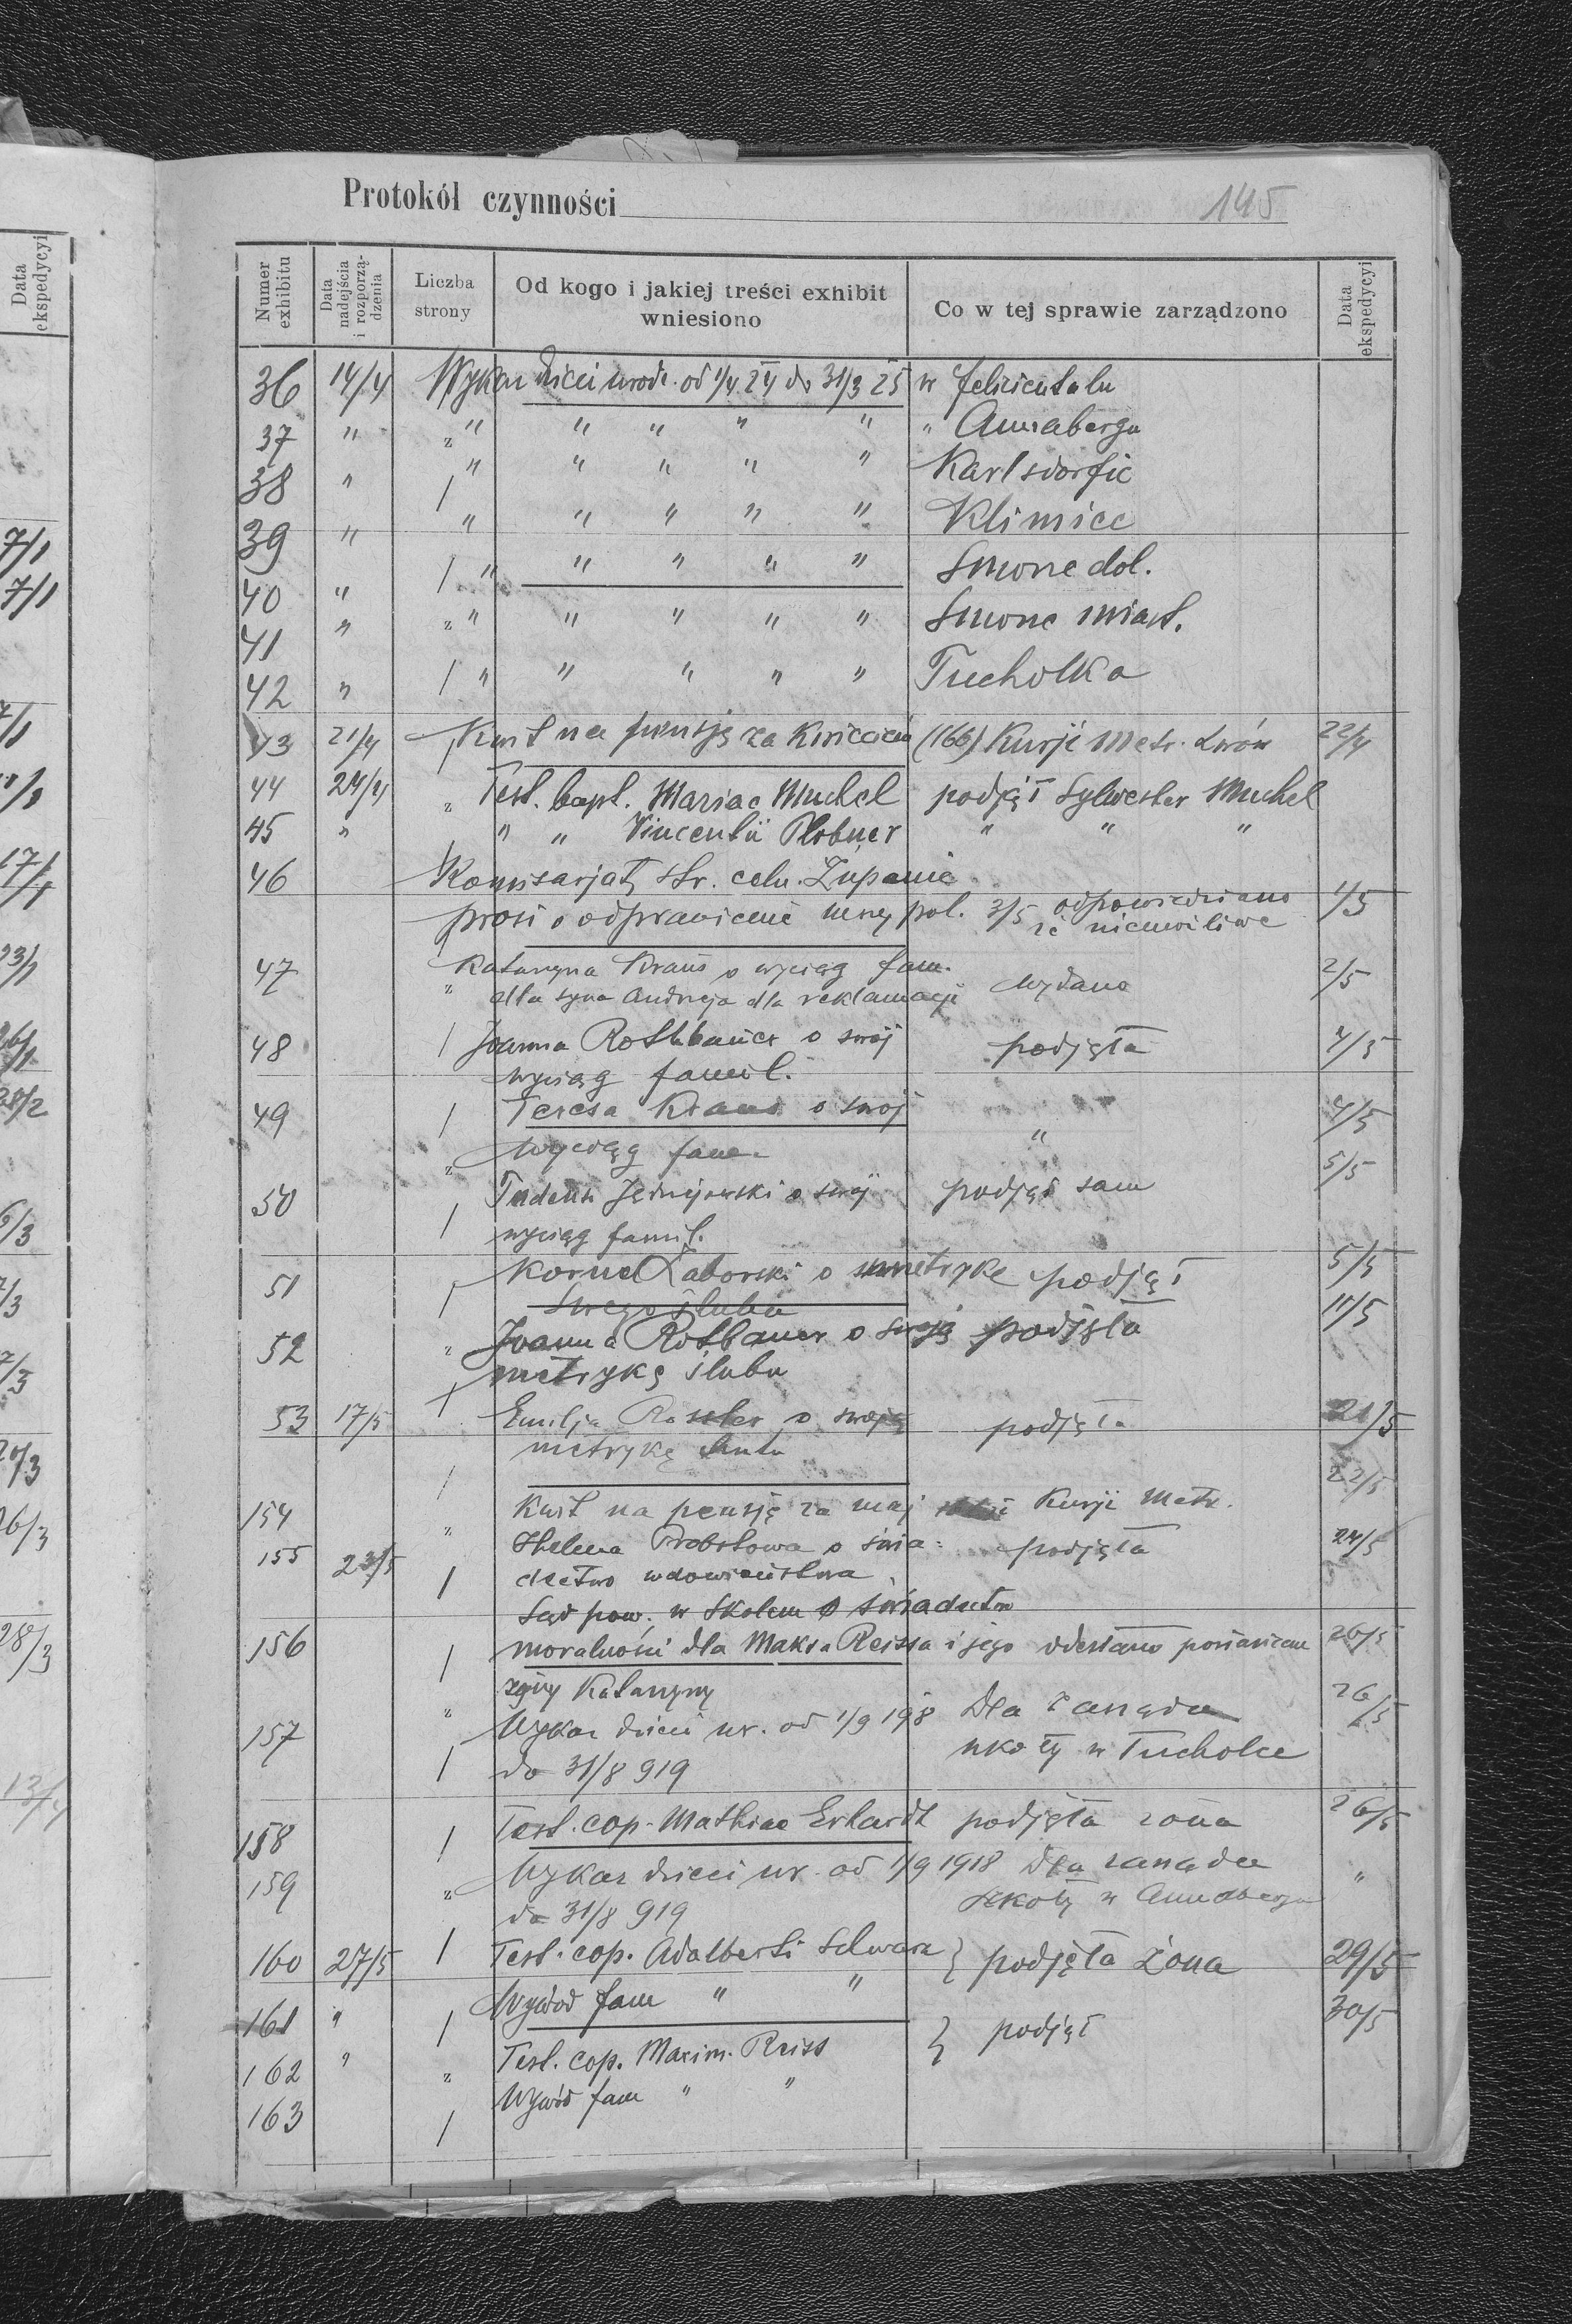 Protokół czynności 145
Data ekspedycyi
Numer exhibitu
Data nadejścia i rozporzą-dzenia
Liczba strony
Od kogo i jakiej treści exhibit wniesiono
Co w tej sprawie zarządzono
Data ekspedycyi
36 14/4 Wykaz dzieci urodz. od 1/4 24 do 31/3 25 w Felizientalu
37 " " " " " " " Annabergu
38 " " " " " " Karlsdorfie
39 " " " " " " Klimiec
40 " " " " " " Smorze dol.
41 " " " " " " Smorze miast.
42 " " " " " " Tucholka
43 21/4 Kwit na pensję za kwiecień (166) Kurji Metr. Lwów 22/4
44 24/4 " Test. bapt. Mariae Muchel podjął Sylwester Muchel
45 " " " Vincentii Plobner " " "
46 Komisarjat str. celn. Zupanie
prosi o odprawienie mszy pol. 3/5 odpowiedziano 1/5
że niemożliwe
47 Katarzyna Kraus o wyciąg fam. wydano 2/5
" dla syna Andreja dla reklamacji
48 Joanna Rothbauer o swój podjęła 4/5
wyciąg famil.
49 Teresa Kraus o swój 4/5
wyciąg fam. "
50 Tadeusz o swój podjął sam 5/5
wyciąg famil.
51 Kornel Zaborski o metrykę podjął 5/5
swego ślubu
52 " Joanna Rotbauer o swoją podjęła 11/5
metrykę ślubu
53 17/5 Emilja Rossler o swoją podjęła 21/5
metrykę
154 Kwit na pensję za maj Kurji Metr. 22/5
155 23/5 " Helena Probstowa o świa= podjęła 24/5
dectwo wdowieństwa
156 Sąd pow. w Skolem o świadectwo
moralności dla Maksa Reissa i jego odesłano 26/5
żony Katarzyny
157 " Wykaz dzieci ur. od 1/9 198 Dla zarządu 26/5
do 31/8 919 szkoły w Tucholce
158 Test. cop. Mathiae Erhardt podjęła żona 26/5
159 " Wykaz dzieci ur. od 1/9 1918 Dla zarządu "
do 31/8 919 szkoły w Annabergu
160 27/5 Test. cop. Adalberti Schwarz } podjęła żona 29/5
161 " Wywód fam " "
162 " " Test. cop. Maxim. Reiss } podjął 30/5
163 Wywód fam " "
7/1
7/1
17/1
23/1
28/2
6/3
7/3
7/3
20/3
26/3
28/3
13/4